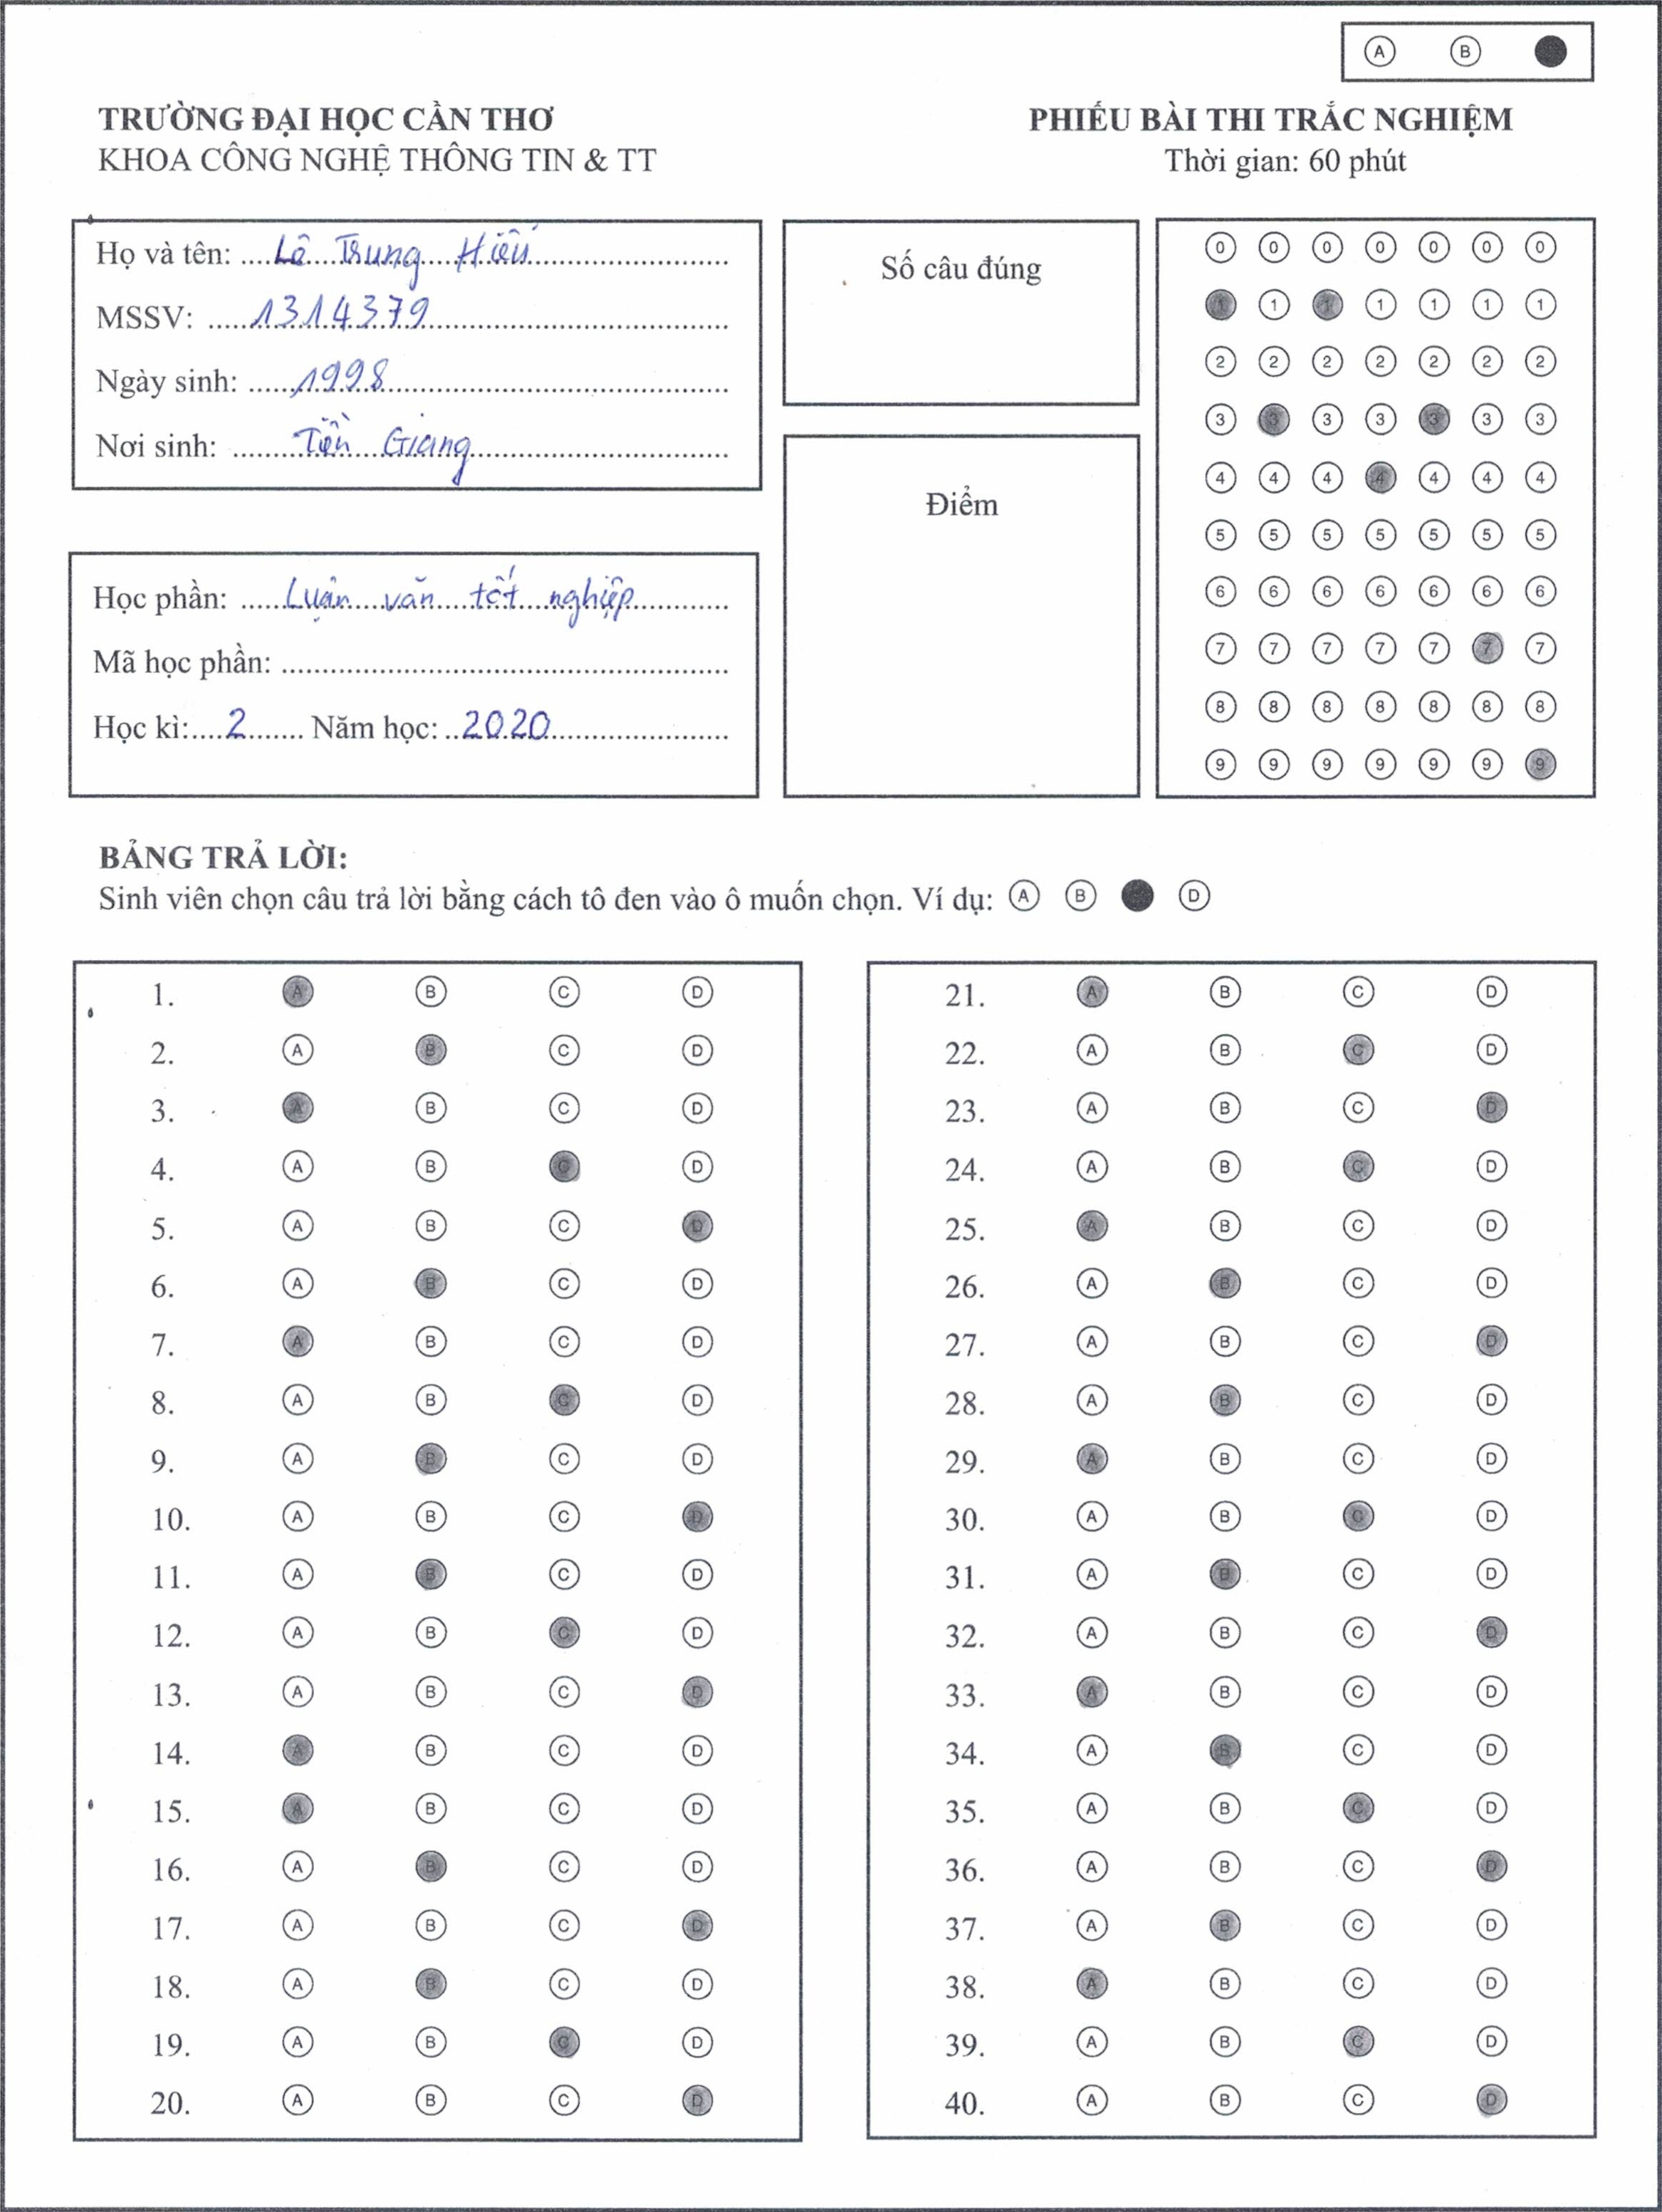 Ⓐ Ⓑ ●
TRƯỜNG ĐẠI HỌC CẦN THƠ
KHOA CÔNG NGHỆ THÔNG TIN & TT
PHIẾU BÀI THI TRẮC NGHIỆM
Thời gian: 60 phút
Họ và tên: ....Lê Trung Hiếu
MSSV: ......1314379
Ngày sinh: ......1998
Nơi sinh: .........Tiền Giang
Học phần: .....Luận văn tốt nghiệp
Mã học phần: ......................................................
Học kì:....2....... Năm học: ..2020
Số câu đúng
Điểm
0 0 0 0 0 0 0
1 1 1 1 1 1 1
2 2 2 2 2 2 2
3 3 3 3 3 3 3
4 4 4 4 4 4 4
5 5 5 5 5 5 5
6 6 6 6 6 6 6
7 7 7 7 7 7 7
8 8 8 8 8 8 8
9 9 9 9 9 9 9
BẢNG TRẢ LỜI:
Sinh viên chọn câu trả lời bằng cách tô đen vào ô muốn chọn. Ví dụ: Ⓐ Ⓑ ● Ⓓ
1. A B C D
2. A B C D
3. A B C D
4. A B C D
5. A B C D
6. A B C D
7. A B C D
8. A B C D
9. A B C D
10. A B C D
11. A B C D
12. A B C D
13. A B C D
14. A B C D
15. A B C D
16. A B C D
17. A B C D
18. A B C D
19. A B C D
20. A B C D
21. A B C D
22. A B C D
23. A B C D
24. A B C D
25. A B C D
26. A B C D
27. A B C D
28. A B C D
29. A B C D
30. A B C D
31. A B C D
32. A B C D
33. A B C D
34. A B C D
35. A B C D
36. A B C D
37. A B C D
38. A B C D
39. A B C D
40. A B C D